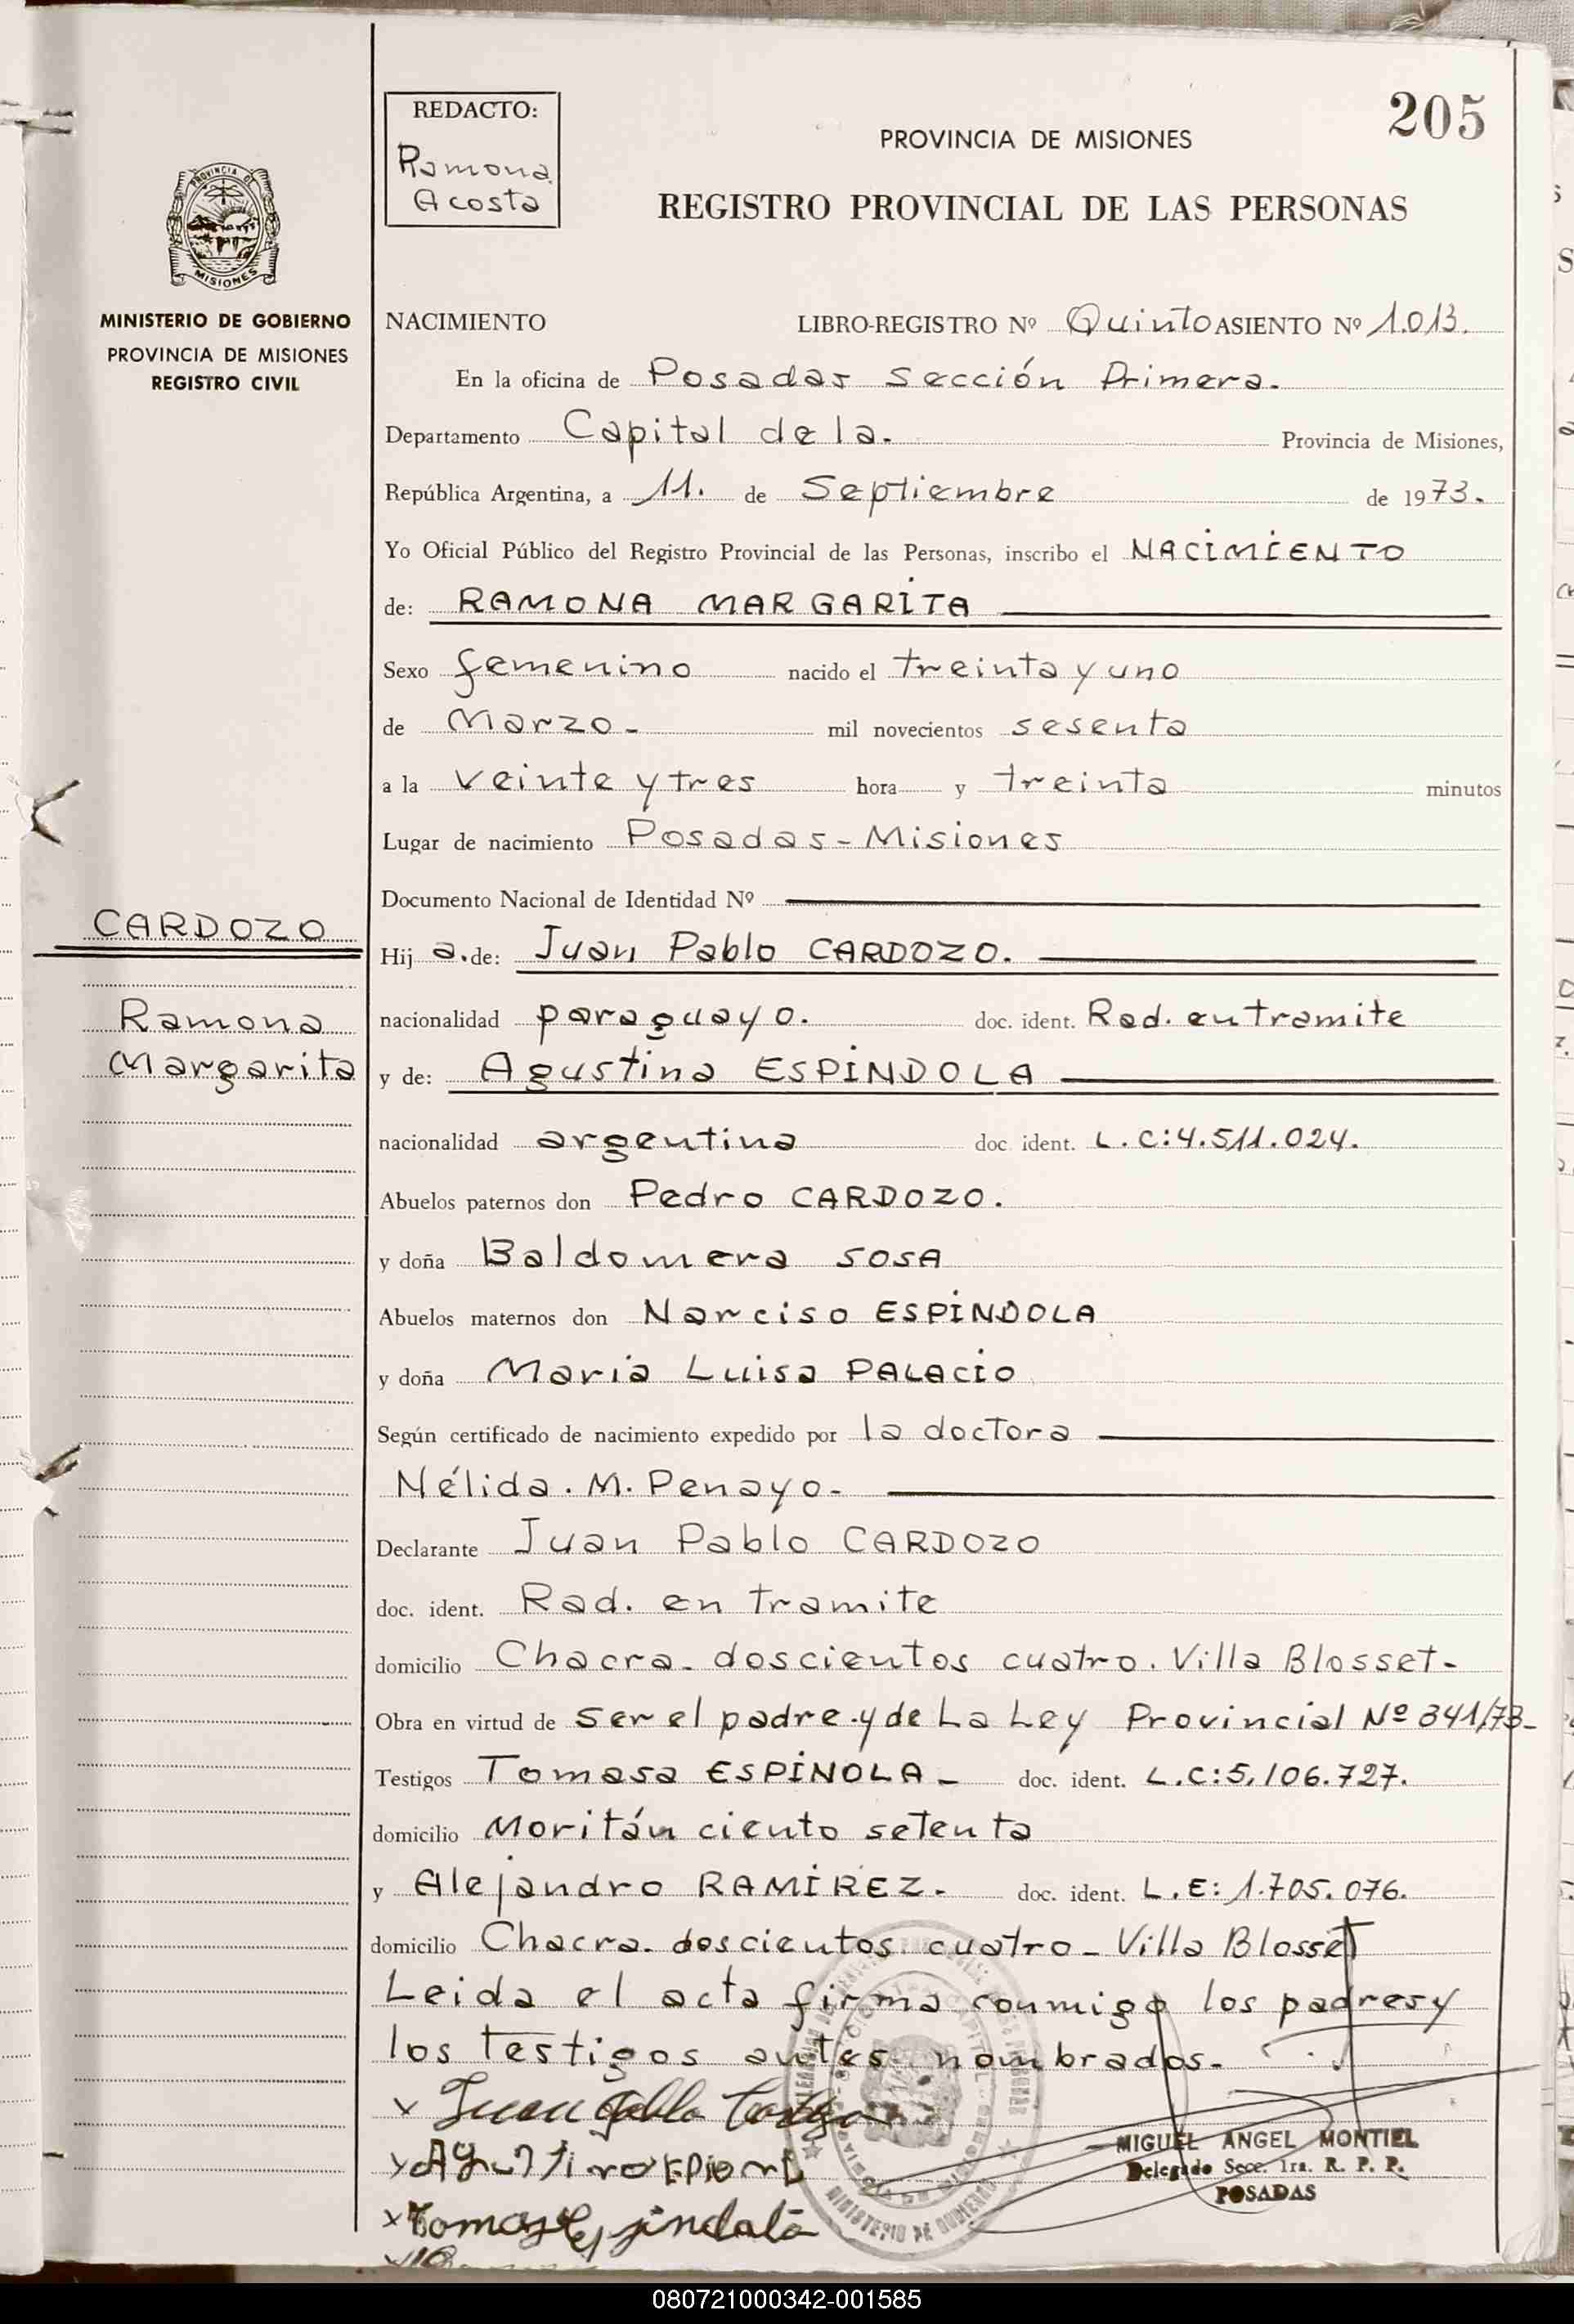 205
REDACTO:
Ramona
Acosta
PROVINCIA DE MISIONES
REGISTRO PROVINCIAL DE LAS PERSONAS
PROVINCIA DE
MISIONES
MINISTERIO DE GOBIERNO
PROVINCIA DE MISIONES
REGISTRO CIVIL
NACIMIENTO LIBRO-REGISTRO Nº Quinto ASIENTO Nº 1.013.
En la oficina de Posadas Sección Primera.
Departamento Capital de la. Provincia de Misiones,
República Argentina, a 11. de Septiembre de 1973.
Yo Oficial Público del Registro Provincial de las Personas, inscribo el NACIMIENTO
de: RAMONA MARGARITA
Sexo femenino nacido el treinta y uno
de Marzo- mil novecientos sesenta
a la veinte y tres hora y treinta minutos
Lugar de nacimiento Posadas-Misiones
Documento Nacional de Identidad Nº
CARDOZO
Ramona
Margarita
Hij a. de: Juan Pablo CARDOZO.
nacionalidad paraguayo. doc. ident. Rad. en tramite
y de: Agustina ESPINDOLA
nacionalidad argentina doc ident. L.C:4.511.024.
Abuelos paternos don Pedro CARDOZO.
y doña Baldomera SOSA
Abuelos maternos don Narciso ESPINDOLA
y doña Maria Luisa PALACIO
Según certificado de nacimiento expedido por la doctora
Nélida. M. Penayo-
Declarante Juan Pablo CARDOZO
doc. ident. Rad. en tramite
domicilio Chacra- doscientos cuatro. Villa Blosset-
Obra en virtud de ser el padre.y de La Ley Provincial Nº 341/73-
Testigos Tomasa ESPINOLA- doc. ident. L.C:5.106.727.
domicilio Moritán ciento setenta
y Alejandro RAMIREZ. doc. ident. L.E: 1.705.076.
domicilio Chacra. doscientos cuatro- Villa Blosset
Leida el acta firma conmigo los padres y
los testigos antes nombrados.
x Juan Pablo Cardozo
MIGUEL ANGEL MONTIEL
Delegado Secc. 1ra. R. P. P.
POSADAS
MINISTERIO DE GOBIERNO
x Tomasa Espindola
080721000342-001585